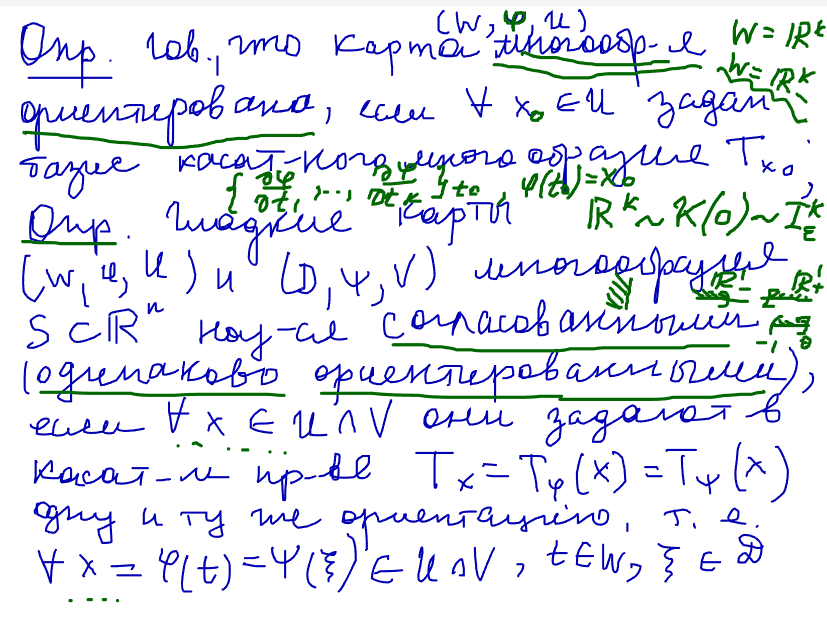 (W, φ, U)
Опр. Гов., что карта многообр-я W = ℝᵏ
W = ℝᵏ
ориентирована, если ∀ x₀ ∈ U задан
базис касат-ного многообразия Tₓ₀;
{∂φ/∂t₁, ..., ∂φ/∂tₖ} t₀, φ(t₀) = x₀
Опр. Гладкие карты ℝᵏ ~ K(0) ~ I_ε^k
(W, φ, U) и (D, ψ, V) многообразия
S ⊂ ℝⁿ наз-ся согласованными
(одинаково ориентированными),
если ∀ x ∈ U ∩ V они задают в
касат-м пр-ве Tₓ = T_φ(x) = T_ψ(x)
одну и ту же ориентацию, т. е.
∀ x = φ(t) = ψ(ξ) ∈ U ∩ V, t ∈ W, ξ ∈ D